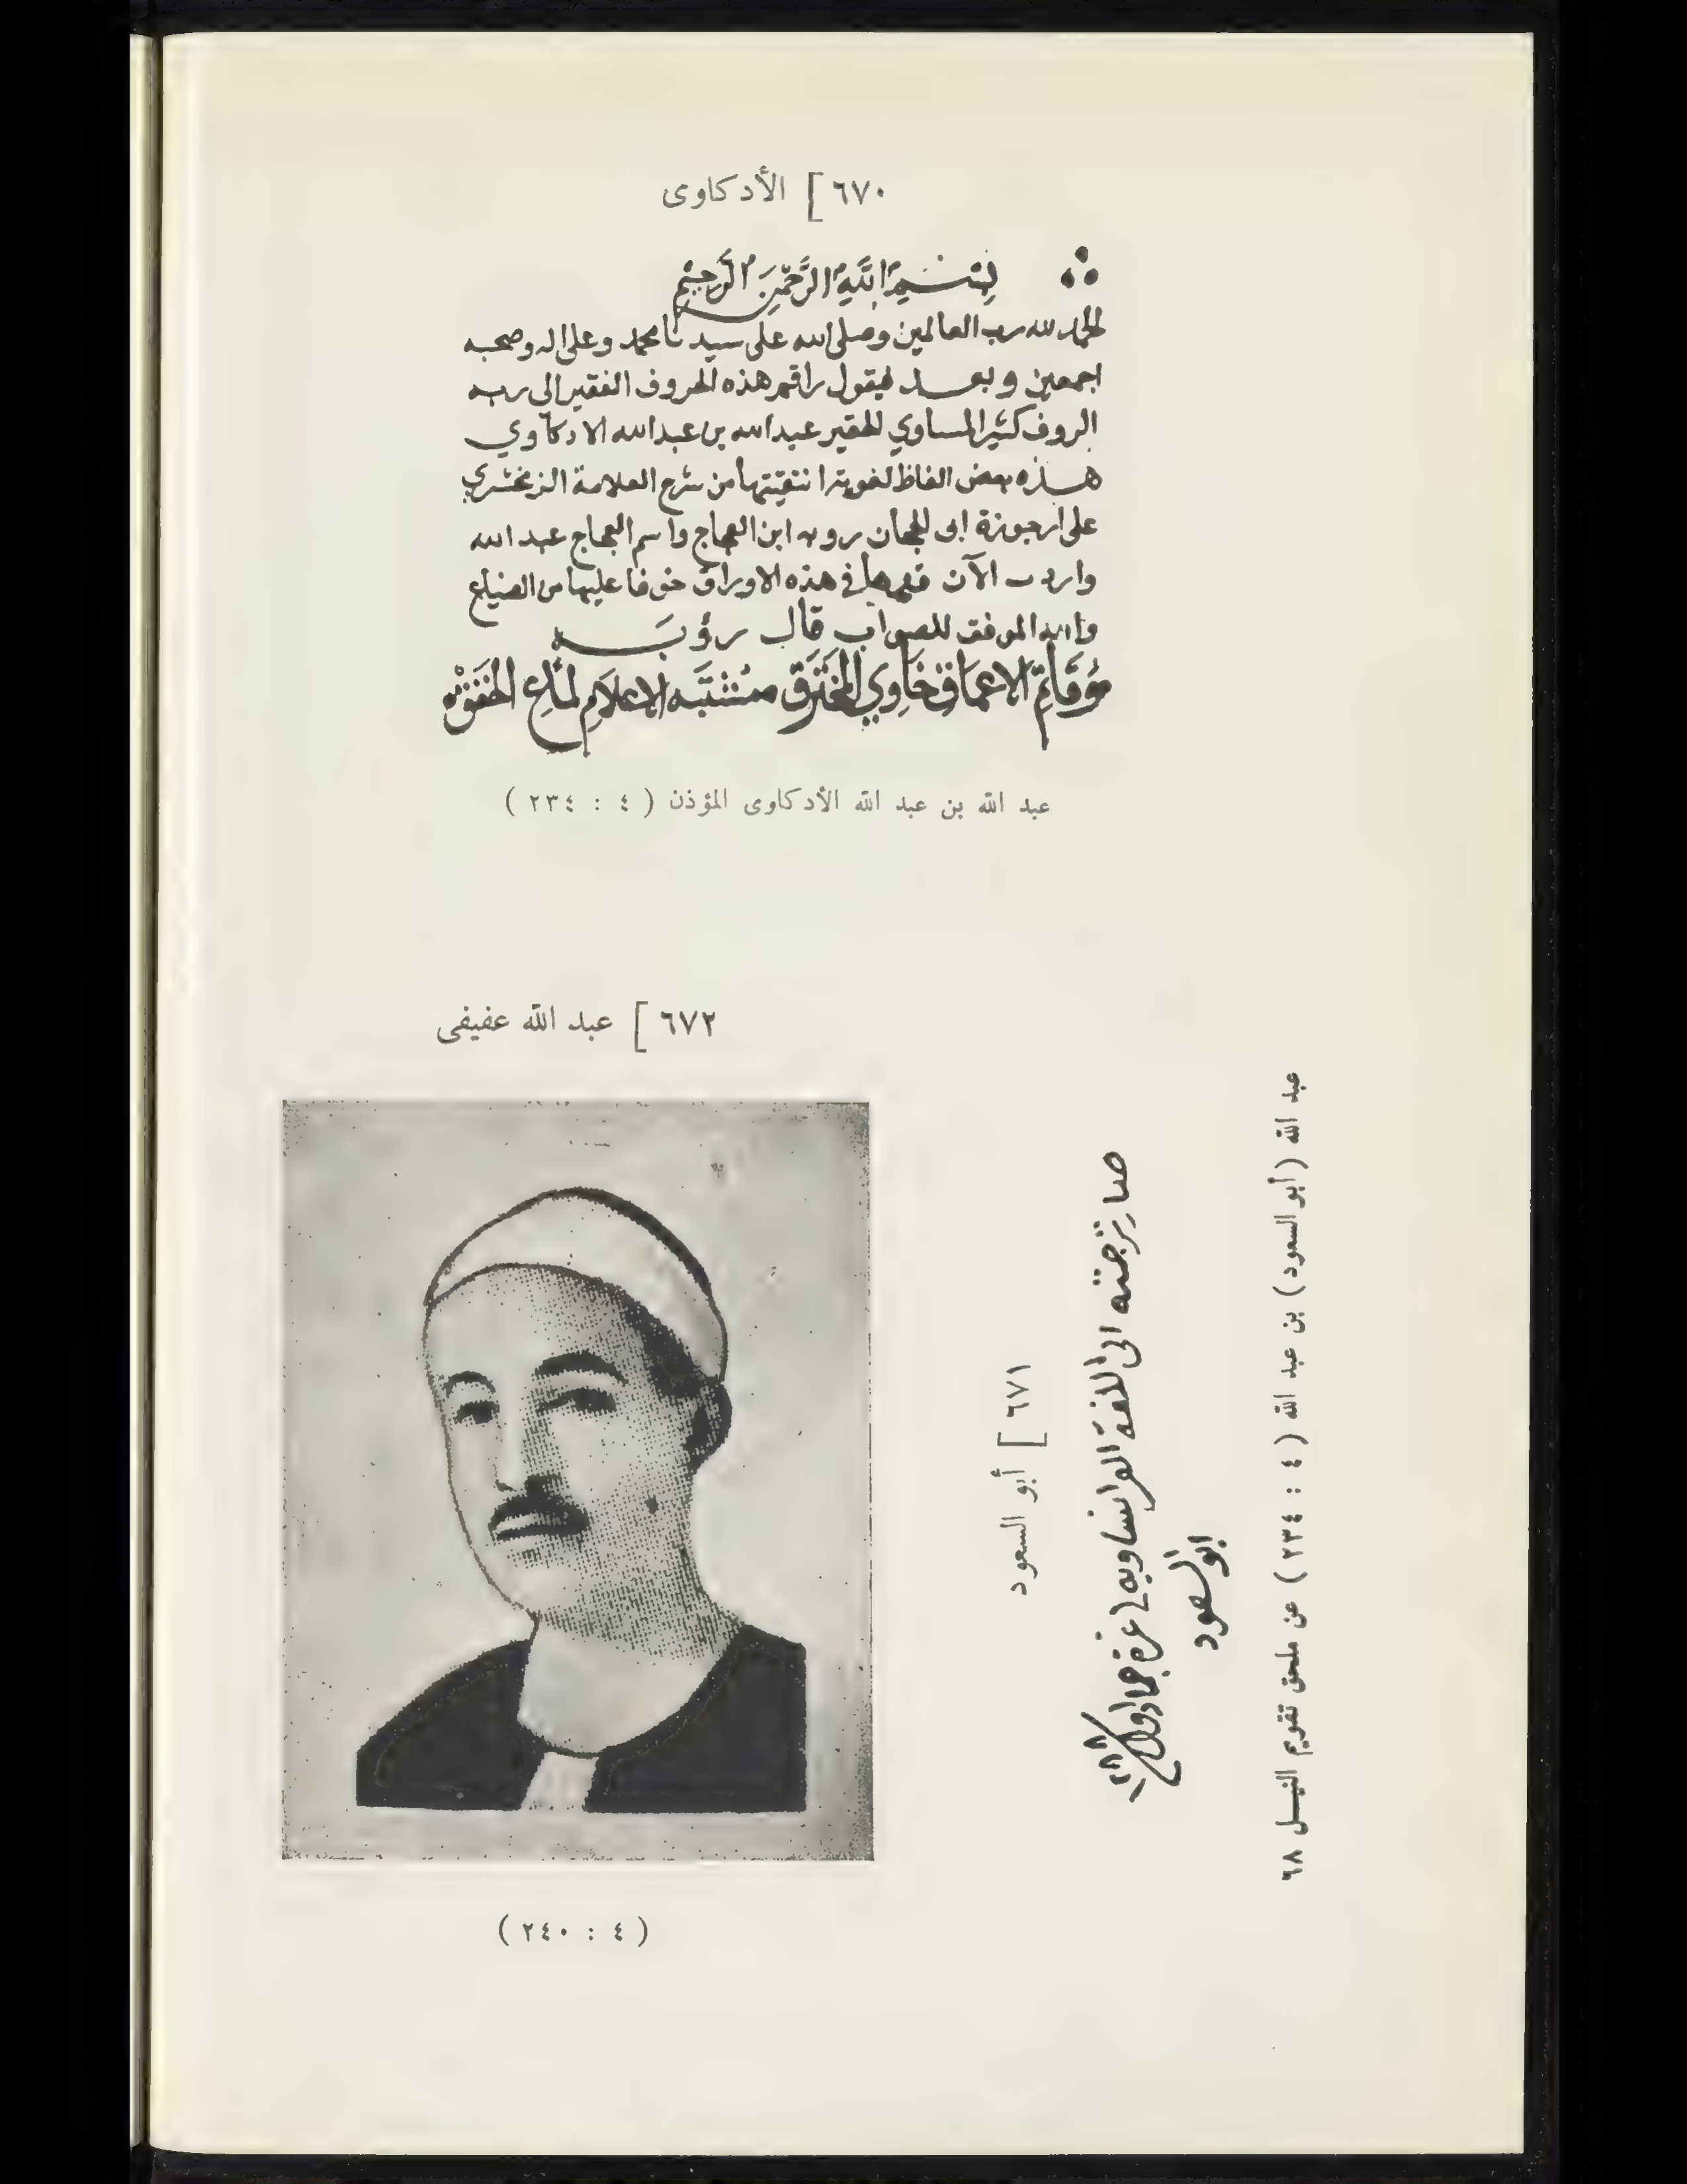 ٦٧٠ [ الأدكاوى
بسم الله الرحمن الرحيم
الحمد لله رب العالمين وصلى الله على سيدنا محمد وعلى اله وصحبه
اجمعين وبعد فيقول راقم هذه الحروف الفقير الى ربه
الروف كثير المساوي الحقير عبد الله بن عبد الله الادكاوي
هذه بعض الفاظ لغوية انتقيتها من شرح العلامة الزمخشري
على ارجوزة ابى الجحاف روبه ابن العجاج واسم العجاج عبد الله
واردت الآن في هذه الاوراق خوفا عليها من الضياع
والله الموفق للصواب قال رؤبه
وَقَاتِمِ الاعماق خَاوِي المُخْتَرَق مُشْتَبَه الاعلامِ لمّاع الخَفَقْ
عبد الله بن عبد الله الأدكاوى المؤذن ( ٤ : ٢٣٤ )
٦٧٢ [ عبد الله عفيفى
( ٤ : ٢٤٠ )
٦٧١ [ أبو السعود
صار ترجمته الى اللغة الفرانساويه في غرة جماد اول
ابو السعود
عبد الله (أبو السعود) بن عبد الله ( ٤ : ٢٣٤ ) عن ملحق تقويم النيـل ٦٨